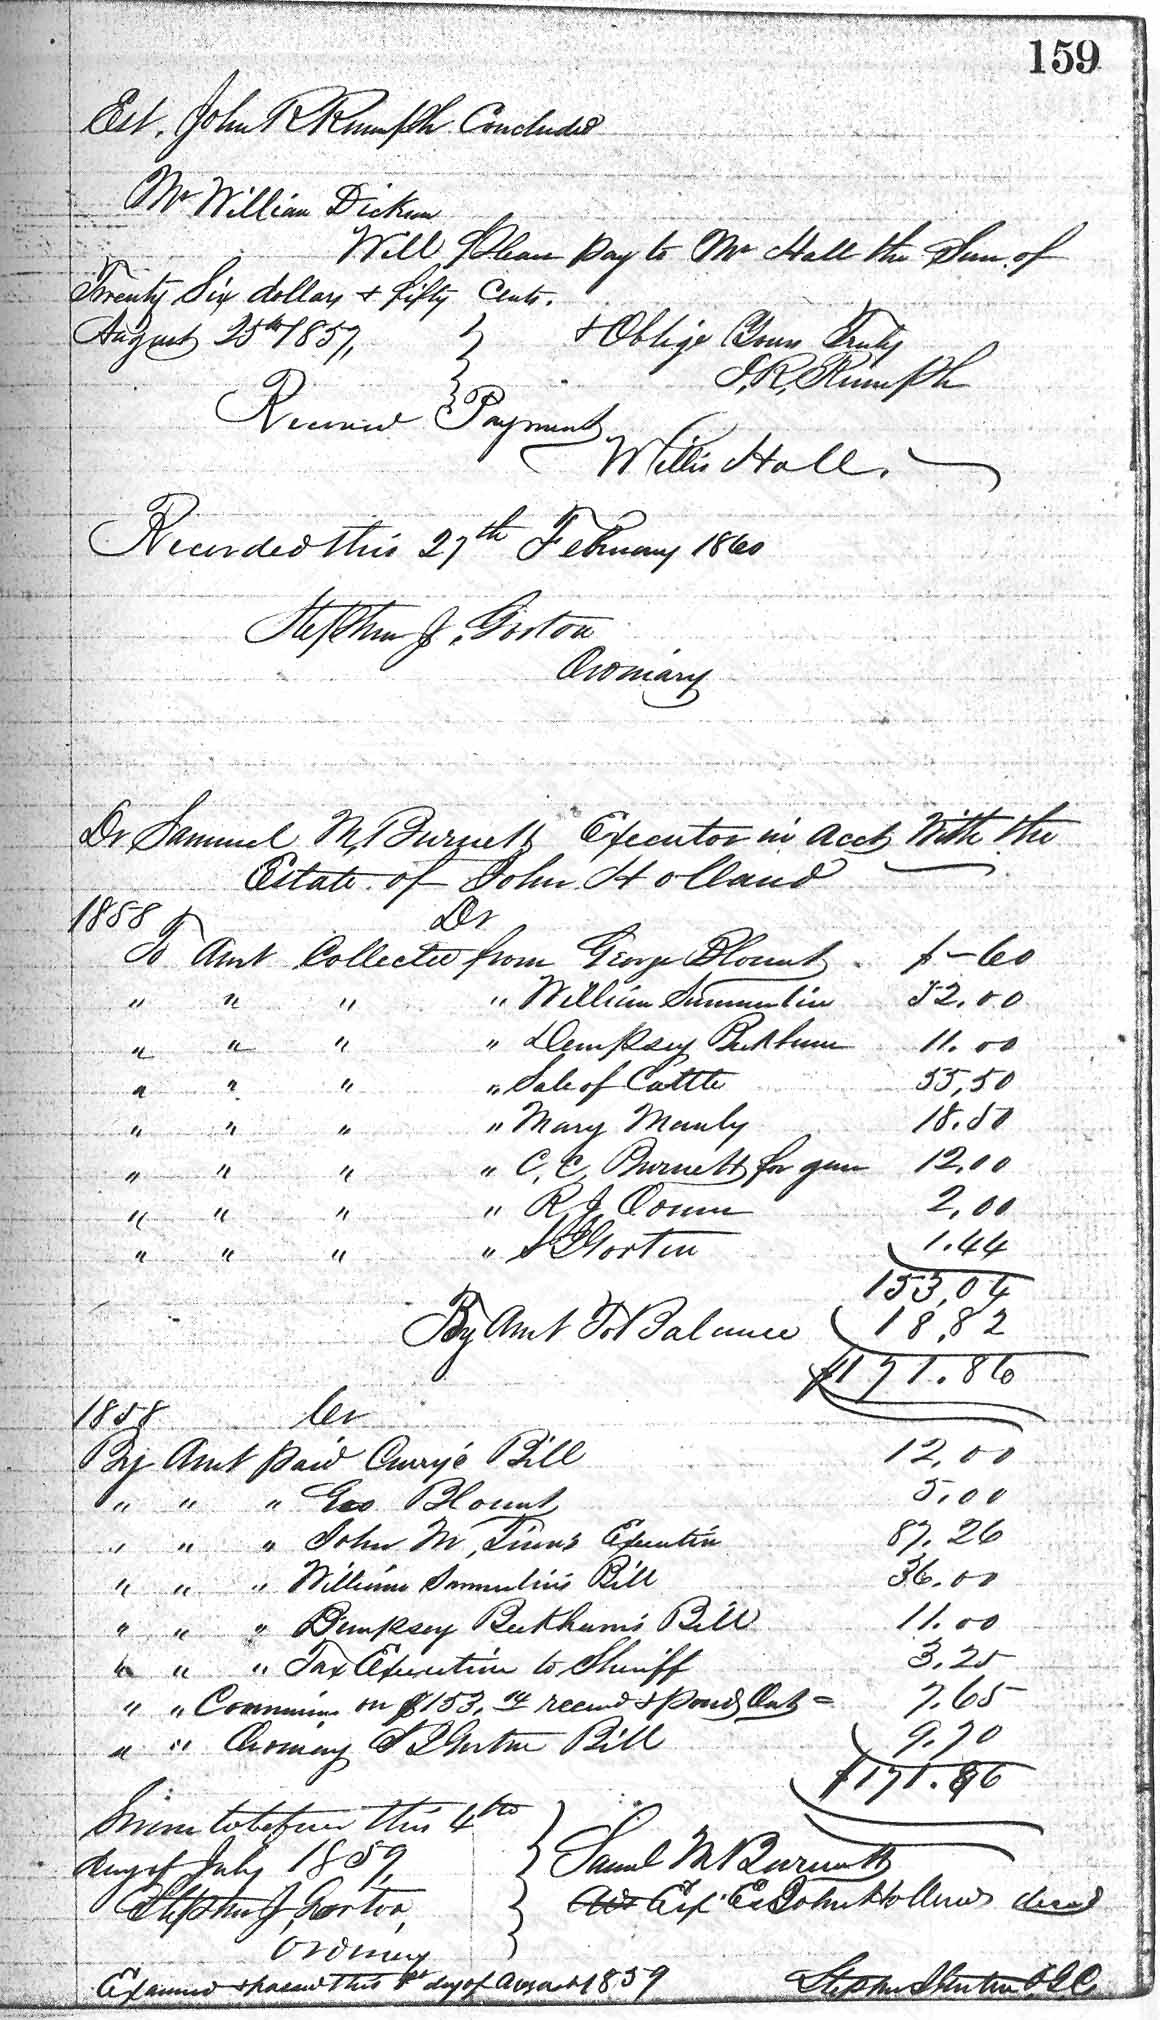 159
Est. John R Rumph Concluded
Mr William Dicken
Will Please pay to Mr Hall the Sum of
Twenty Six dollars & fifty Cents.
August 25th 1857, & Oblige Yours Truly
J. R. Rumph
Received Payment
Willis Hall.
Recorded this 27th February 1860
Stephen J. Gorton
Ordinary
Dr Samuel M, Burnett Executor in acct With the
Estate of John Holland
1858 Dr
To Amt Collected from George Blount $ - 60
" " " " William Summerlin 52.00
" " " " Dempsey 11.00
" " " " Sale of Cattle 55,50
" " " " Mary Manly 18.50
" " " " C, C, Burnett for gun 12,00
" " " " R J 2,00
" " " " S J Gorton 1.44
153,04
By Amt To Balance 18,82
$171.86
1858 Cr
By Amt paid Curry's Bill 12,00
" " " Geo Blount 5,00
" " " John M, Execution 87.26
" " " William Summerlin's Bill 36.00
" " " Dempsey Beckham's Bill 11.00
" " " Tax Execution to Sheriff 3,25
" " Commission on $153.04 received & paid Out = 7,65
" " Ordinary S J Gorton Bill 9,70
$171.86
Sworn to before this 4th
day of July 1859, Saml M Burnett
Stephen J, Gorton, Exr Est John Holland decd
Ordinary
Examined & passed this day of August 1859 Stephen J Gorton